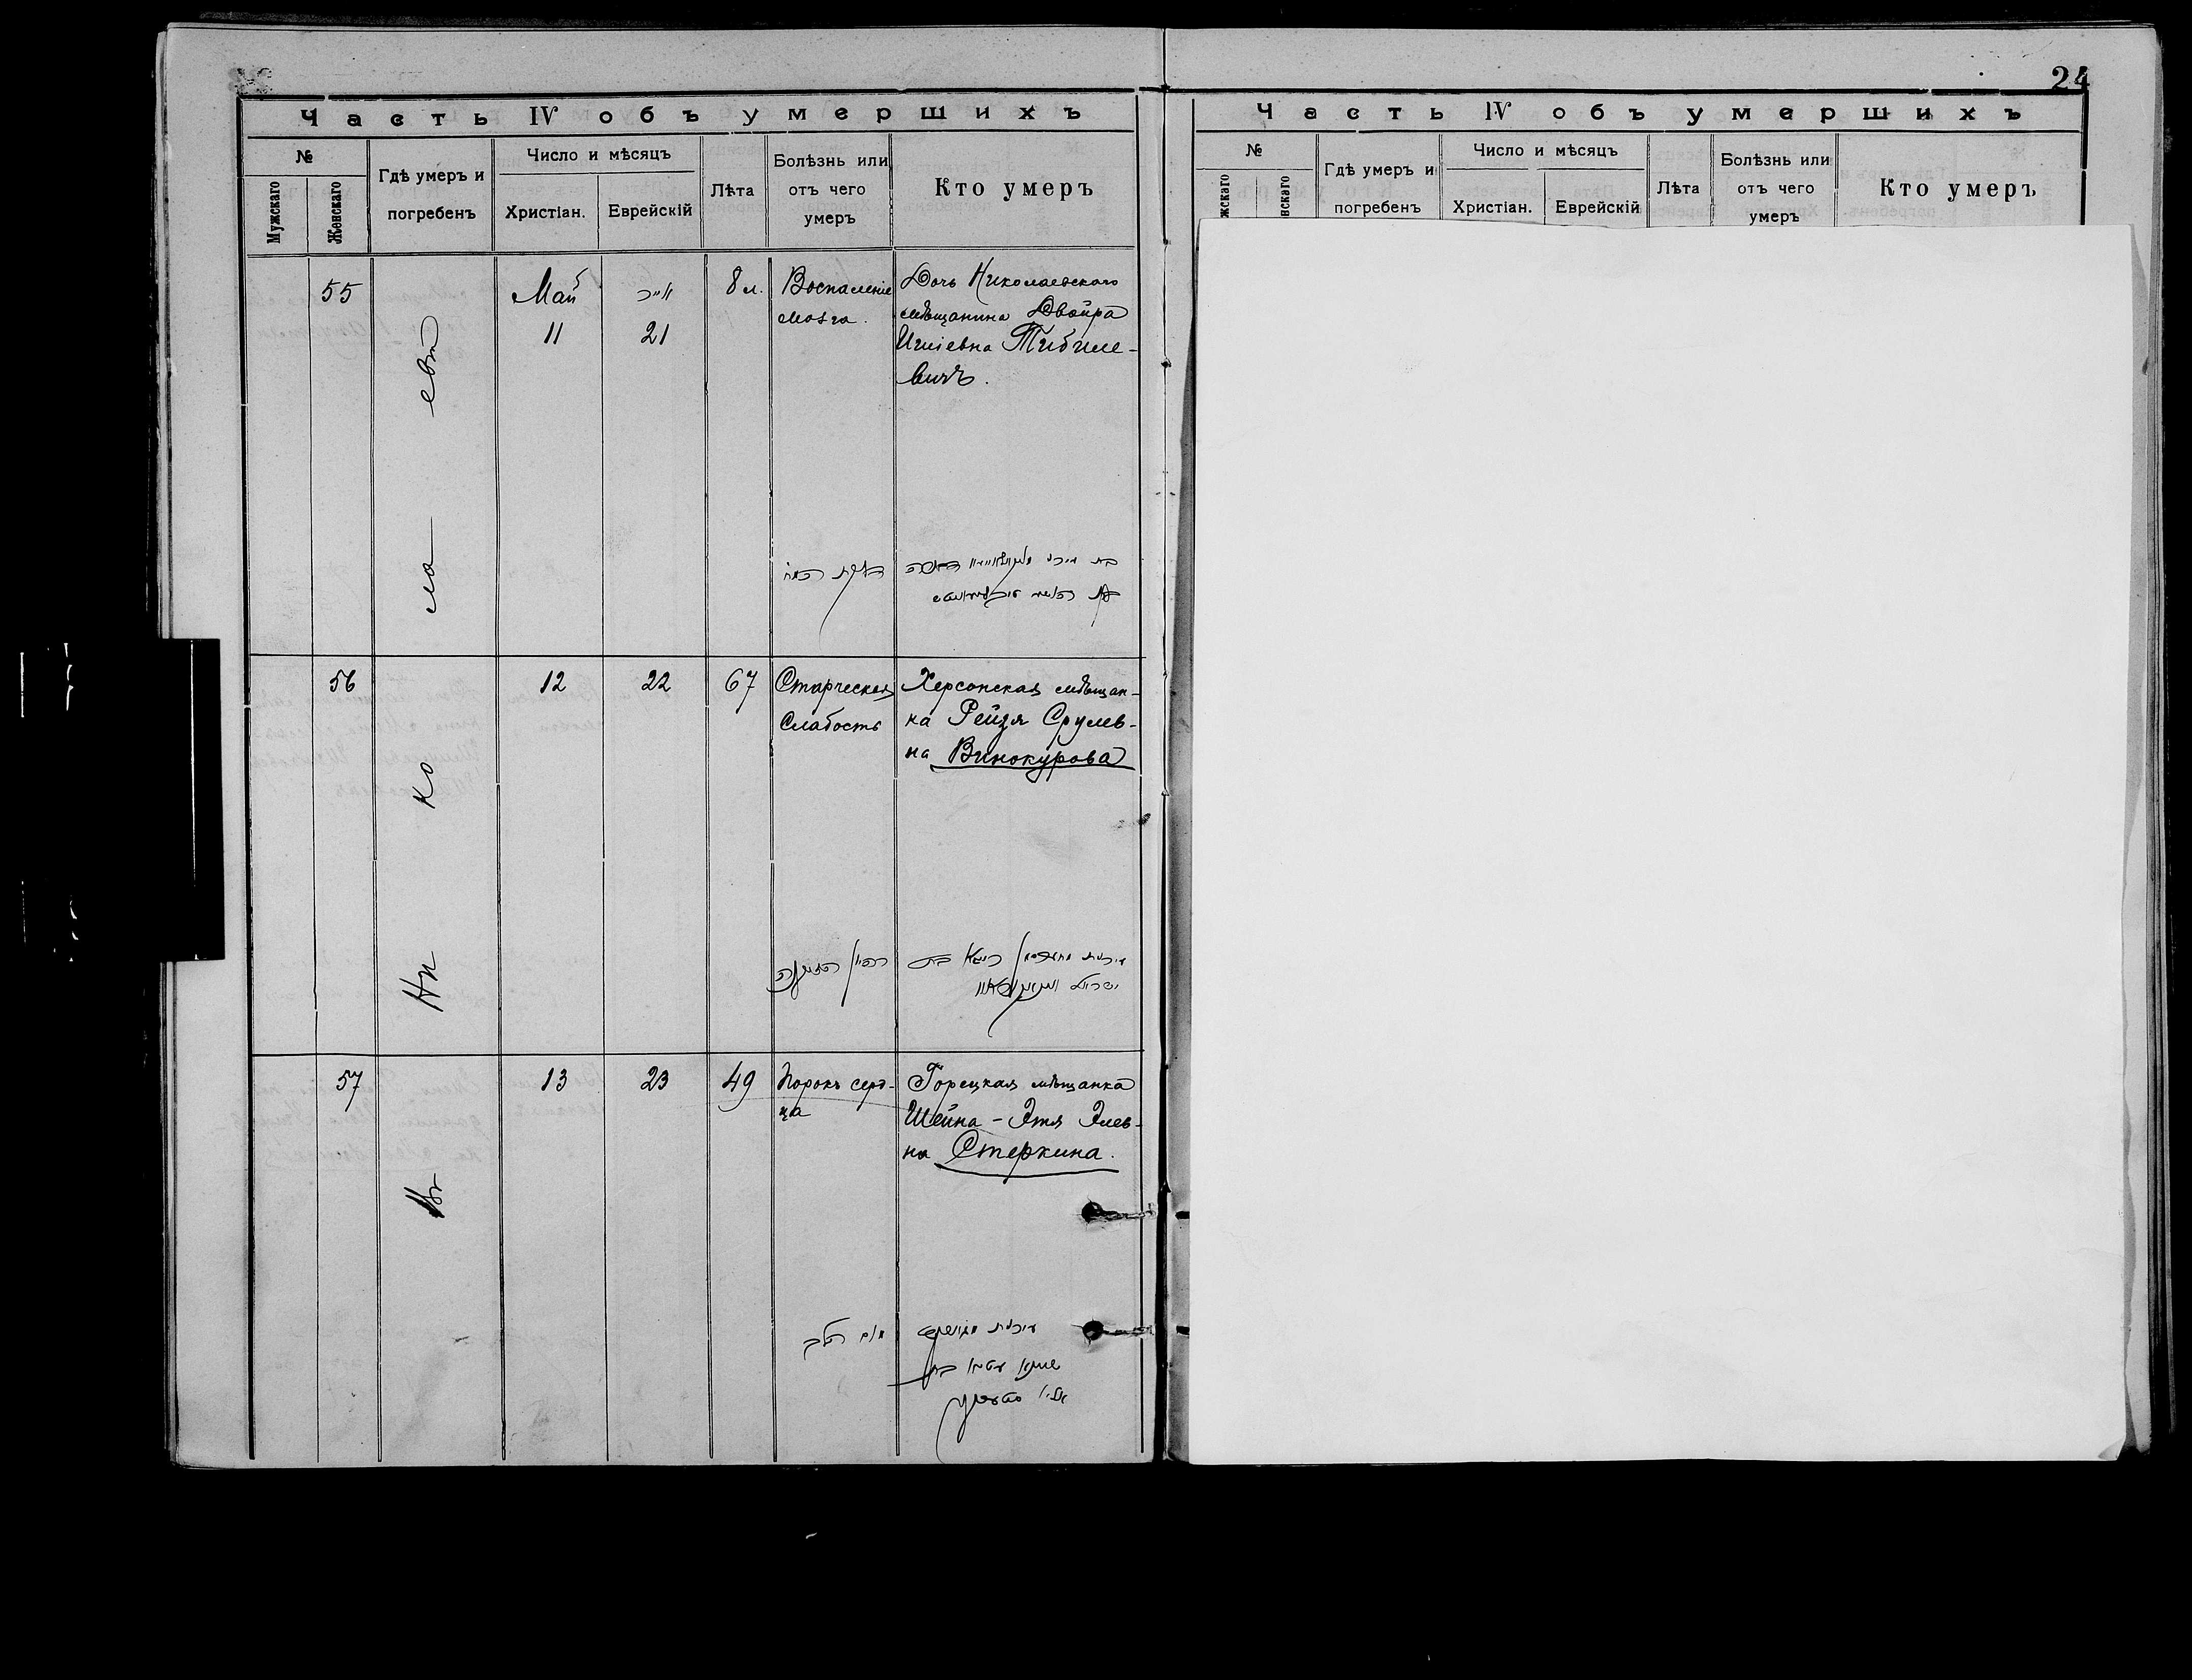 24
Часть IV объ умершихъ
№
Мужскаго
Женскаго
Гдѣ умеръ и
погребенъ
Число и мѣсяцъ
Христіан.
Еврейскій
Лѣта
Болѣзнь или
отъ чего
умеръ
Кто умеръ
55
Май
11
אייר
21
8 м.
Воспаленіе
мозга.
Дочь Николаевскаго
мѣщанина Двойра
דלקת המוח
56
12
22
67
Старческая
Слабость
Херсонская мѣщан-
ка Рейзя Срулев-
на Винокурова
עירנית
ישראל
57
13
23
49
Порокъ серд-
ца
Горецкая мѣщанка
Шейна-Этя Элев-
на Стеркина.
מום הלב
עירנית
Въ
Ни
ко
ла
евѣ
Часть IV объ умершихъ
№
жскаго
нскаго
Гдѣ умеръ и
погребенъ
Число и мѣсяцъ
Христіан.
Еврейскій
Лѣта
Болѣзнь или
отъ чего
умеръ
Кто умеръ